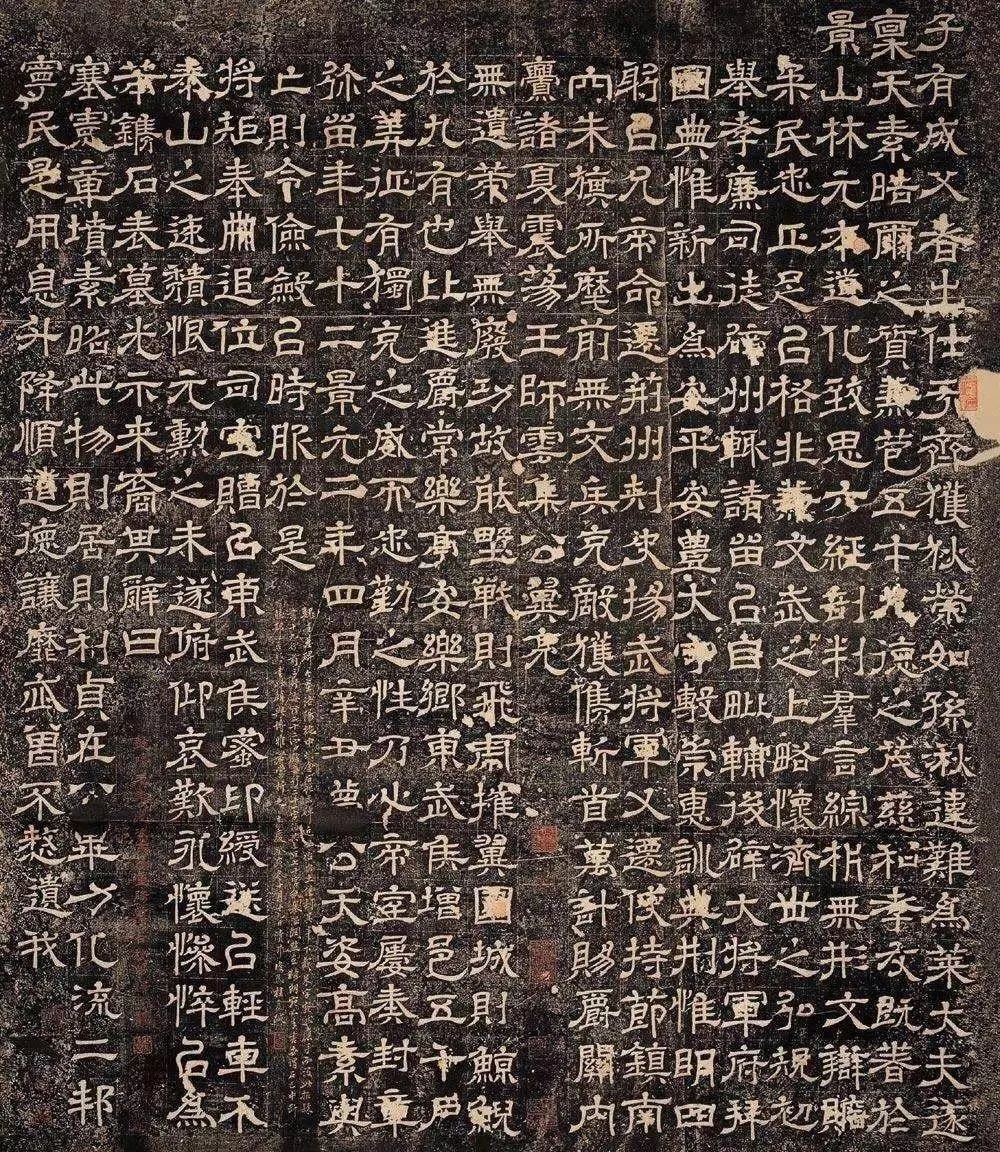 子有成父者出仕于齊獲狄榮如孫湫違難爲萊大夫遂
稟天素皓爾之質兼苞五才九德之茂慈和孝友既著於
景山林元本道化致思六經剖判羣言綜析無形文辯贍
采民忠正足以格非兼文武之上略懷濟世之弘規初
舉孝廉司徒辟州輒請留以自毗輔後辟大將軍府拜
國典惟新出爲安平安豐太守敷崇惠訓典刑惟明四
躬以允帝命遷荊州刺史揚武將軍又遷使持節鎮南
內朱旗所麾前無交兵克敵獲儁斬首萬計賜爵關內
釁諸夏震蕩王師雲集公翼亮
無遺策舉無廢功故能野戰則飛虜摧翼圍城則鯨鯢
於九有也比進爵常樂亭安樂鄉東武侯增邑五千戶
之美征有獨克之威而忠勤之性乃心帝室屢奏封章
弥留年七十二景元二年四月辛丑薨公天姿高素與
亡則令儉斂以時服於是
將矩奉冊追位司空贈以東武侯蜜印綬送以輕車不
泰山之速穨恨元勳之未遂俯仰哀歎永懷慘悴以爲
本鐫石表墓光示來裔其辭曰
塞憲章墳素昭此物則居則利貞在公畢力化流二邦
寧民是用息升降順道德讓靡忒曾不憖遺我